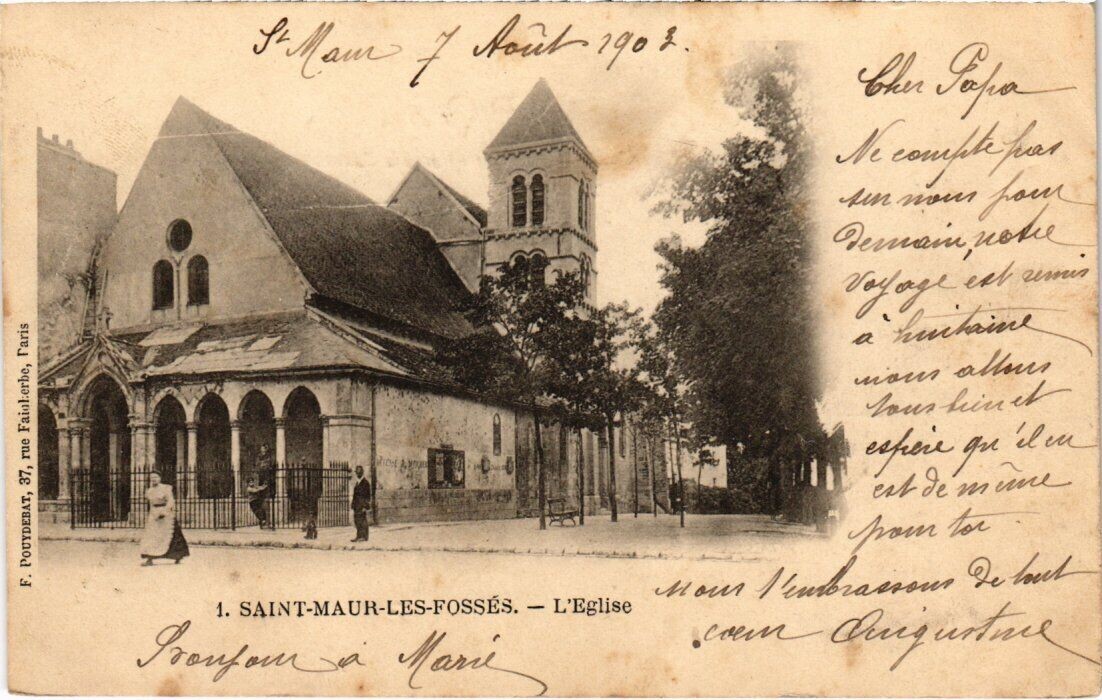 St Maur 7 Août 1903.
Cher Papa
Ne compte pas
sur nous pour
Demain, notre
voyage est remis
à huitaine
nous allons
tous bien et
espère qu'il en
est de même
pour toi
nous t'embrassons de tout
coeur Augustine
Bonjour à Marie
1. SAINT-MAUR-LES-FOSSÉS. — L'Eglise
F. POUYDEBAT, 37, rue Faidherbe, Paris